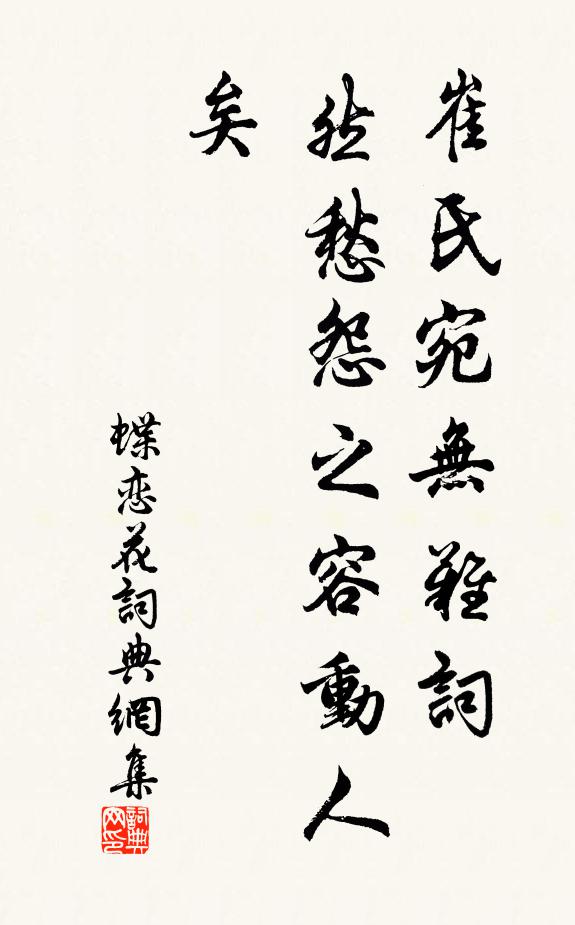 崔氏宛無難詞
然愁怨之容動人
矣
蝶恋花詞典網集
詞典
网印